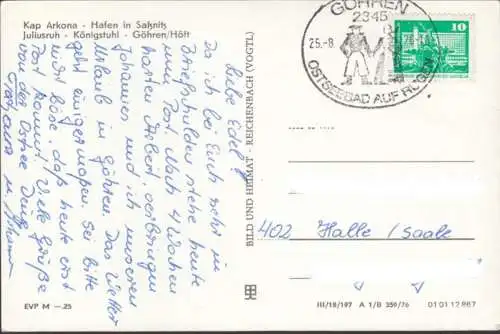 Kap Arkona - Hafen in Saßnitz
Juliusruh - Königstuhl - Göhren/Höft
GÖHREN
2345
25.-8.
76
OSTSEEBAD AUF RÜGEN
10
Liebe Edel
Da ich bei Euch sehr in
Briefschulden stehe heute
eine Post. Nach 4 Wochen
harten Arbeit, verbringen
Johannes und ich unseren
Urlaub in Göhren. Das Wetter
geht einigermaßen. Sei bitte
nicht böse, daß heute erst
Post kommt. Viele Grüße
von der Ostsee Deine
u. Johannes
BILD UND HEIMAT · REICHENBACH (VOGTL)
402 Halle / Saale
EVP M —.25
III/18/197 A 1/B 359/76 01 01 12 867